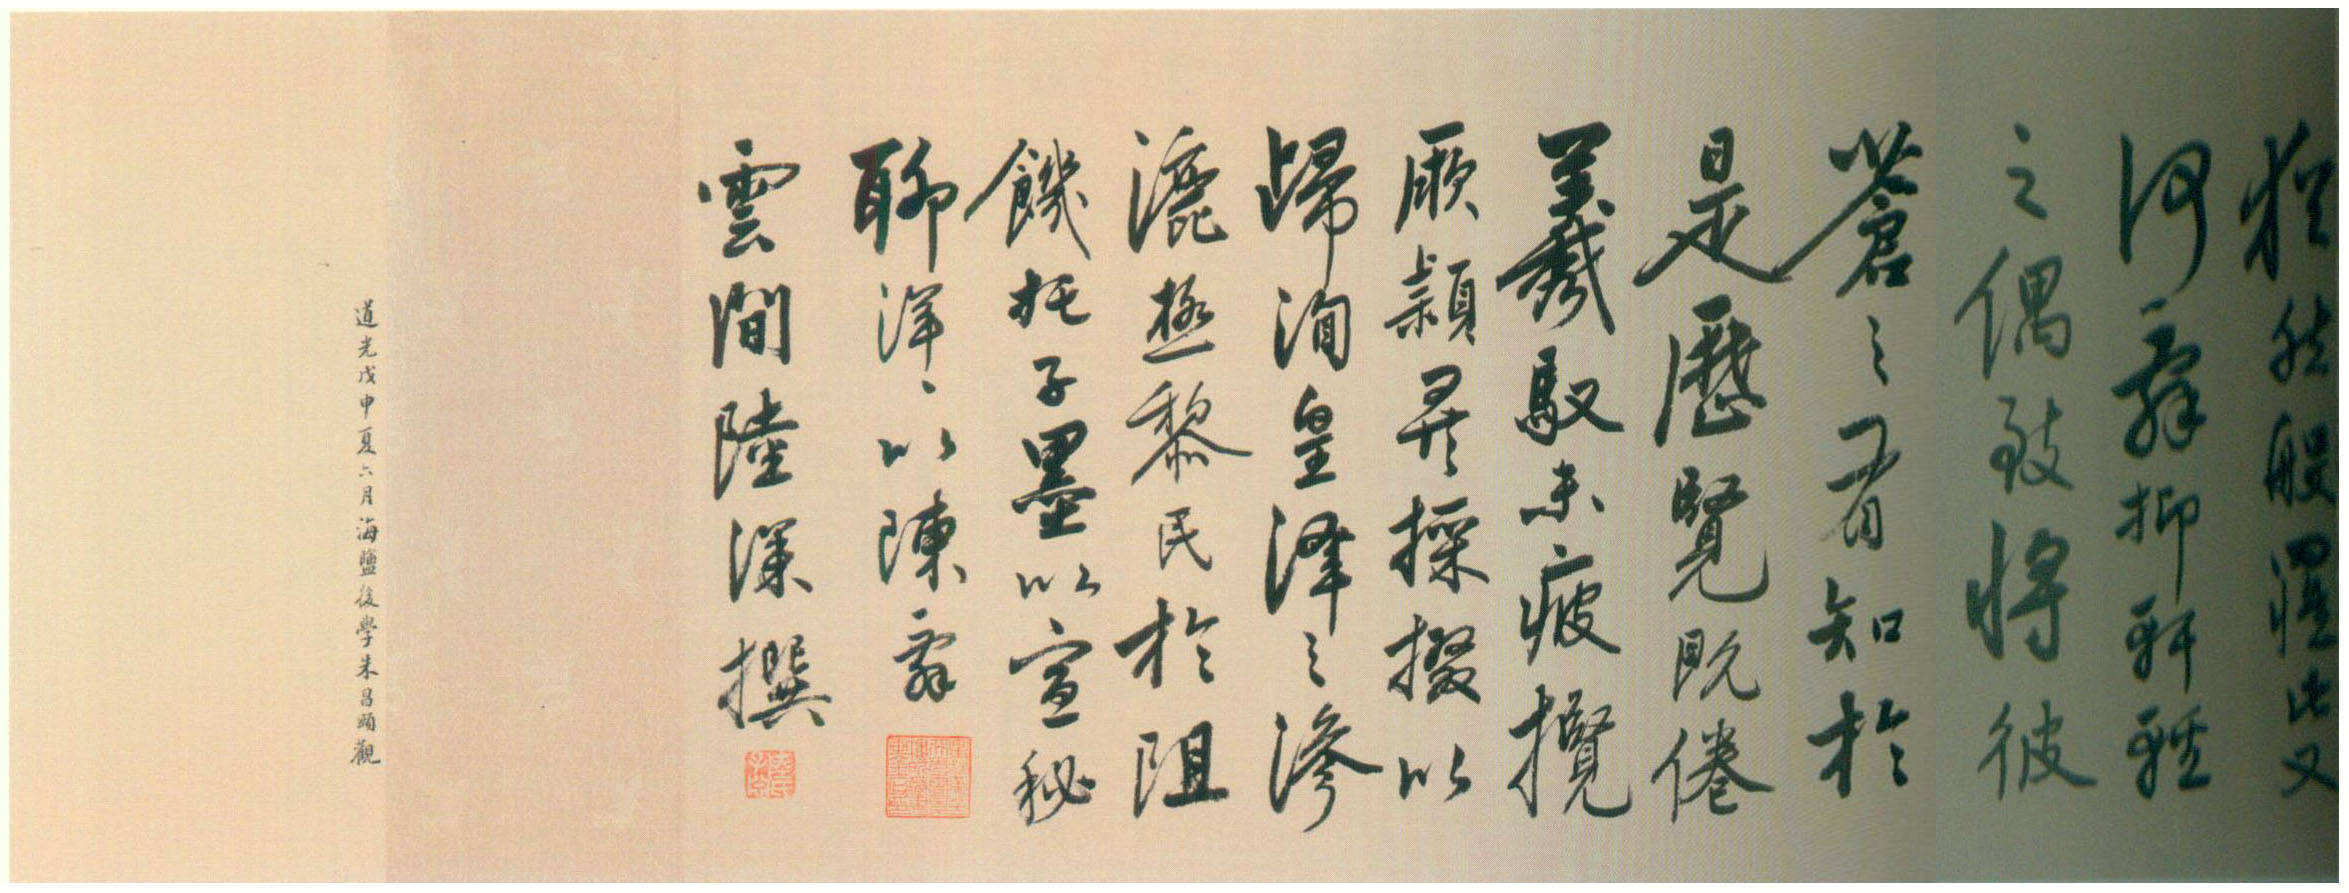 猶然
何辭抑軒輊
之偶致將彼
蒼之有知於
是歷覽既倦
羲馭未疲攬
厥穎異採掇以
歸洵皇澤之滲
漉拯黎民於阻
饑托子墨以宣秘
聊洋〻以陳辭
雲間陸深撰
道光戊申夏六月海鹽後學朱昌頤觀